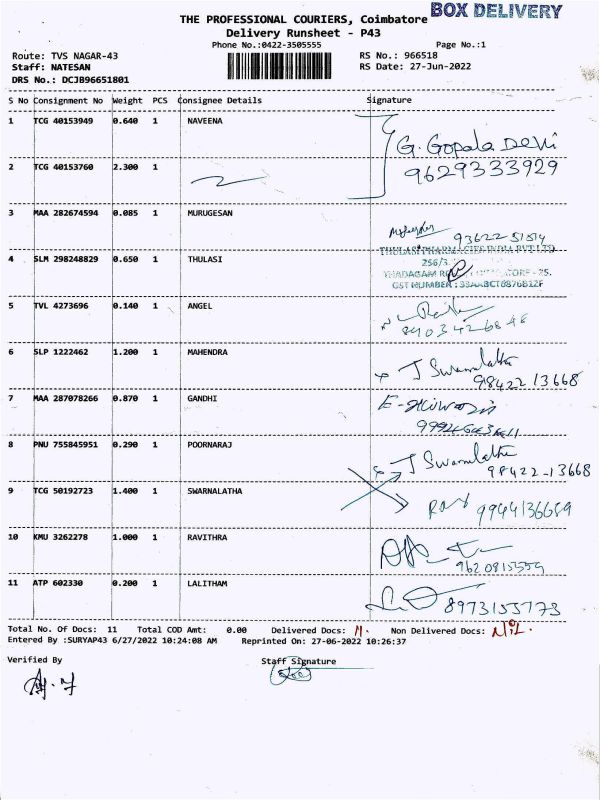 BOX DELIVERY
THE PROFESSIONAL COURIERS, Coimbatore
Delivery Runsheet - P43
Phone No.:0422-3505555 Page No.:1
Route: TVS NAGAR-43 RS No.: 966518
Staff: NATESAN RS Date: 27-Jun-2022
DRS No.: DCJB96651801
S No Consignment No Weight PCS Consignee Details Signature
1 TCG 40153949 0.640 1 NAVEENA
G. Gopala Devi
2 TCG 40153760 2.300 1
9629333929
3 MAA 282674594 0.085 1 MURUGESAN
93622 51514
THULASI PHARMACIES INDIA PVT LTD
4 SLM 298248829 0.650 1 THULASI
256/3
THADAGAM
GST NUMBER :
5 TVL 4273696 0.140 1 ANGEL
6 SLP 1222462 1.200 1 MAHENDRA
J Swarnalatha
98422 13668
7 MAA 287078266 0.870 1 GANDHI
8 PNU 755845951 0.290 1 POORNARAJ
J Swarnalatha
98422-13668
9 TCG 50192723 1.400 1 SWARNALATHA
10 KMU 3262278 1.000 1 RAVITHRA
11 ATP 602330 0.200 1 LALITHAM
8973155773
Total No. Of Docs: 11 Total COD Amt: 0.00 Delivered Docs: 11. Non Delivered Docs: Nil.
Entered By :SURYAP43 6/27/2022 10:24:08 AM Reprinted On: 27-06-2022 10:26:37
Verified By Staff Signature